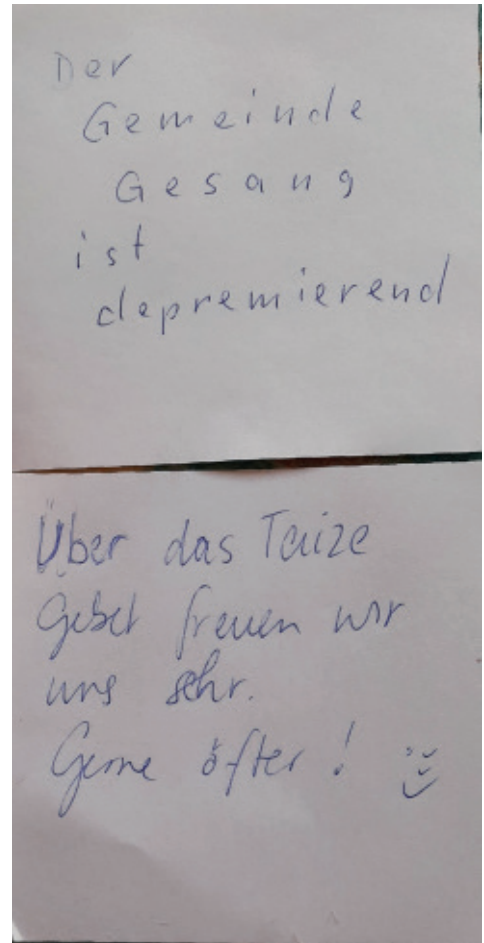 Der
Gemeinde
Gesang
ist
depremierend
Über das Taize
Gebet freuen wir
uns sehr.
Gerne öfter!